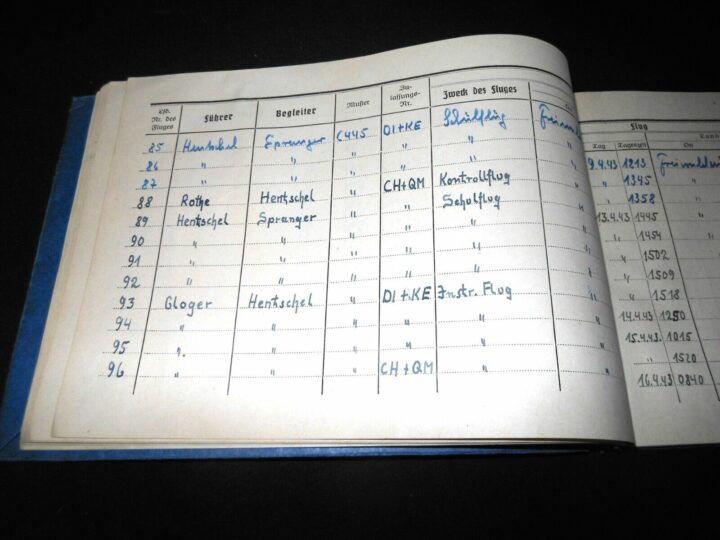 Lfd. Nr. des Fluges Führer Begleiter Muster Zu-lassungs-Nr. Zweck des Fluges Flug
Tag Tageszeit On
85 Hentschel Spranger C445 DI+KE Schulflug 9.4.43 1213
86 " " " " " " 1345
87 " " " " " " 1358
88 Rothe Hentschel " CH+QM Kontrollflug " 13.4.43 1445
89 Hentschel Spranger " " Schulflug " " 1454
90 " " " " " " " 1502
91 " " " " " " " 1509
92 " " " " " " " 1518
93 Gloger Hentschel " DI+KE Instr. Flug " 14.4.43 1250
94 " " " " " " 15.4.43. 1015
95 " " " " " " " 1520
96 " " " CH+QM " " 16.4.43 0840